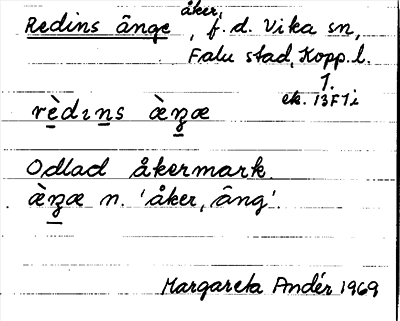 Redins änge åker, f.d. Vika sn,
Falu stad, Kopp.l.
1.
ek. 13F7i
rèdıns æ̀ŋæ
Odlad åkermark.
æ̀ŋæ n. 'åker, äng'.
Margareta Andér 1969